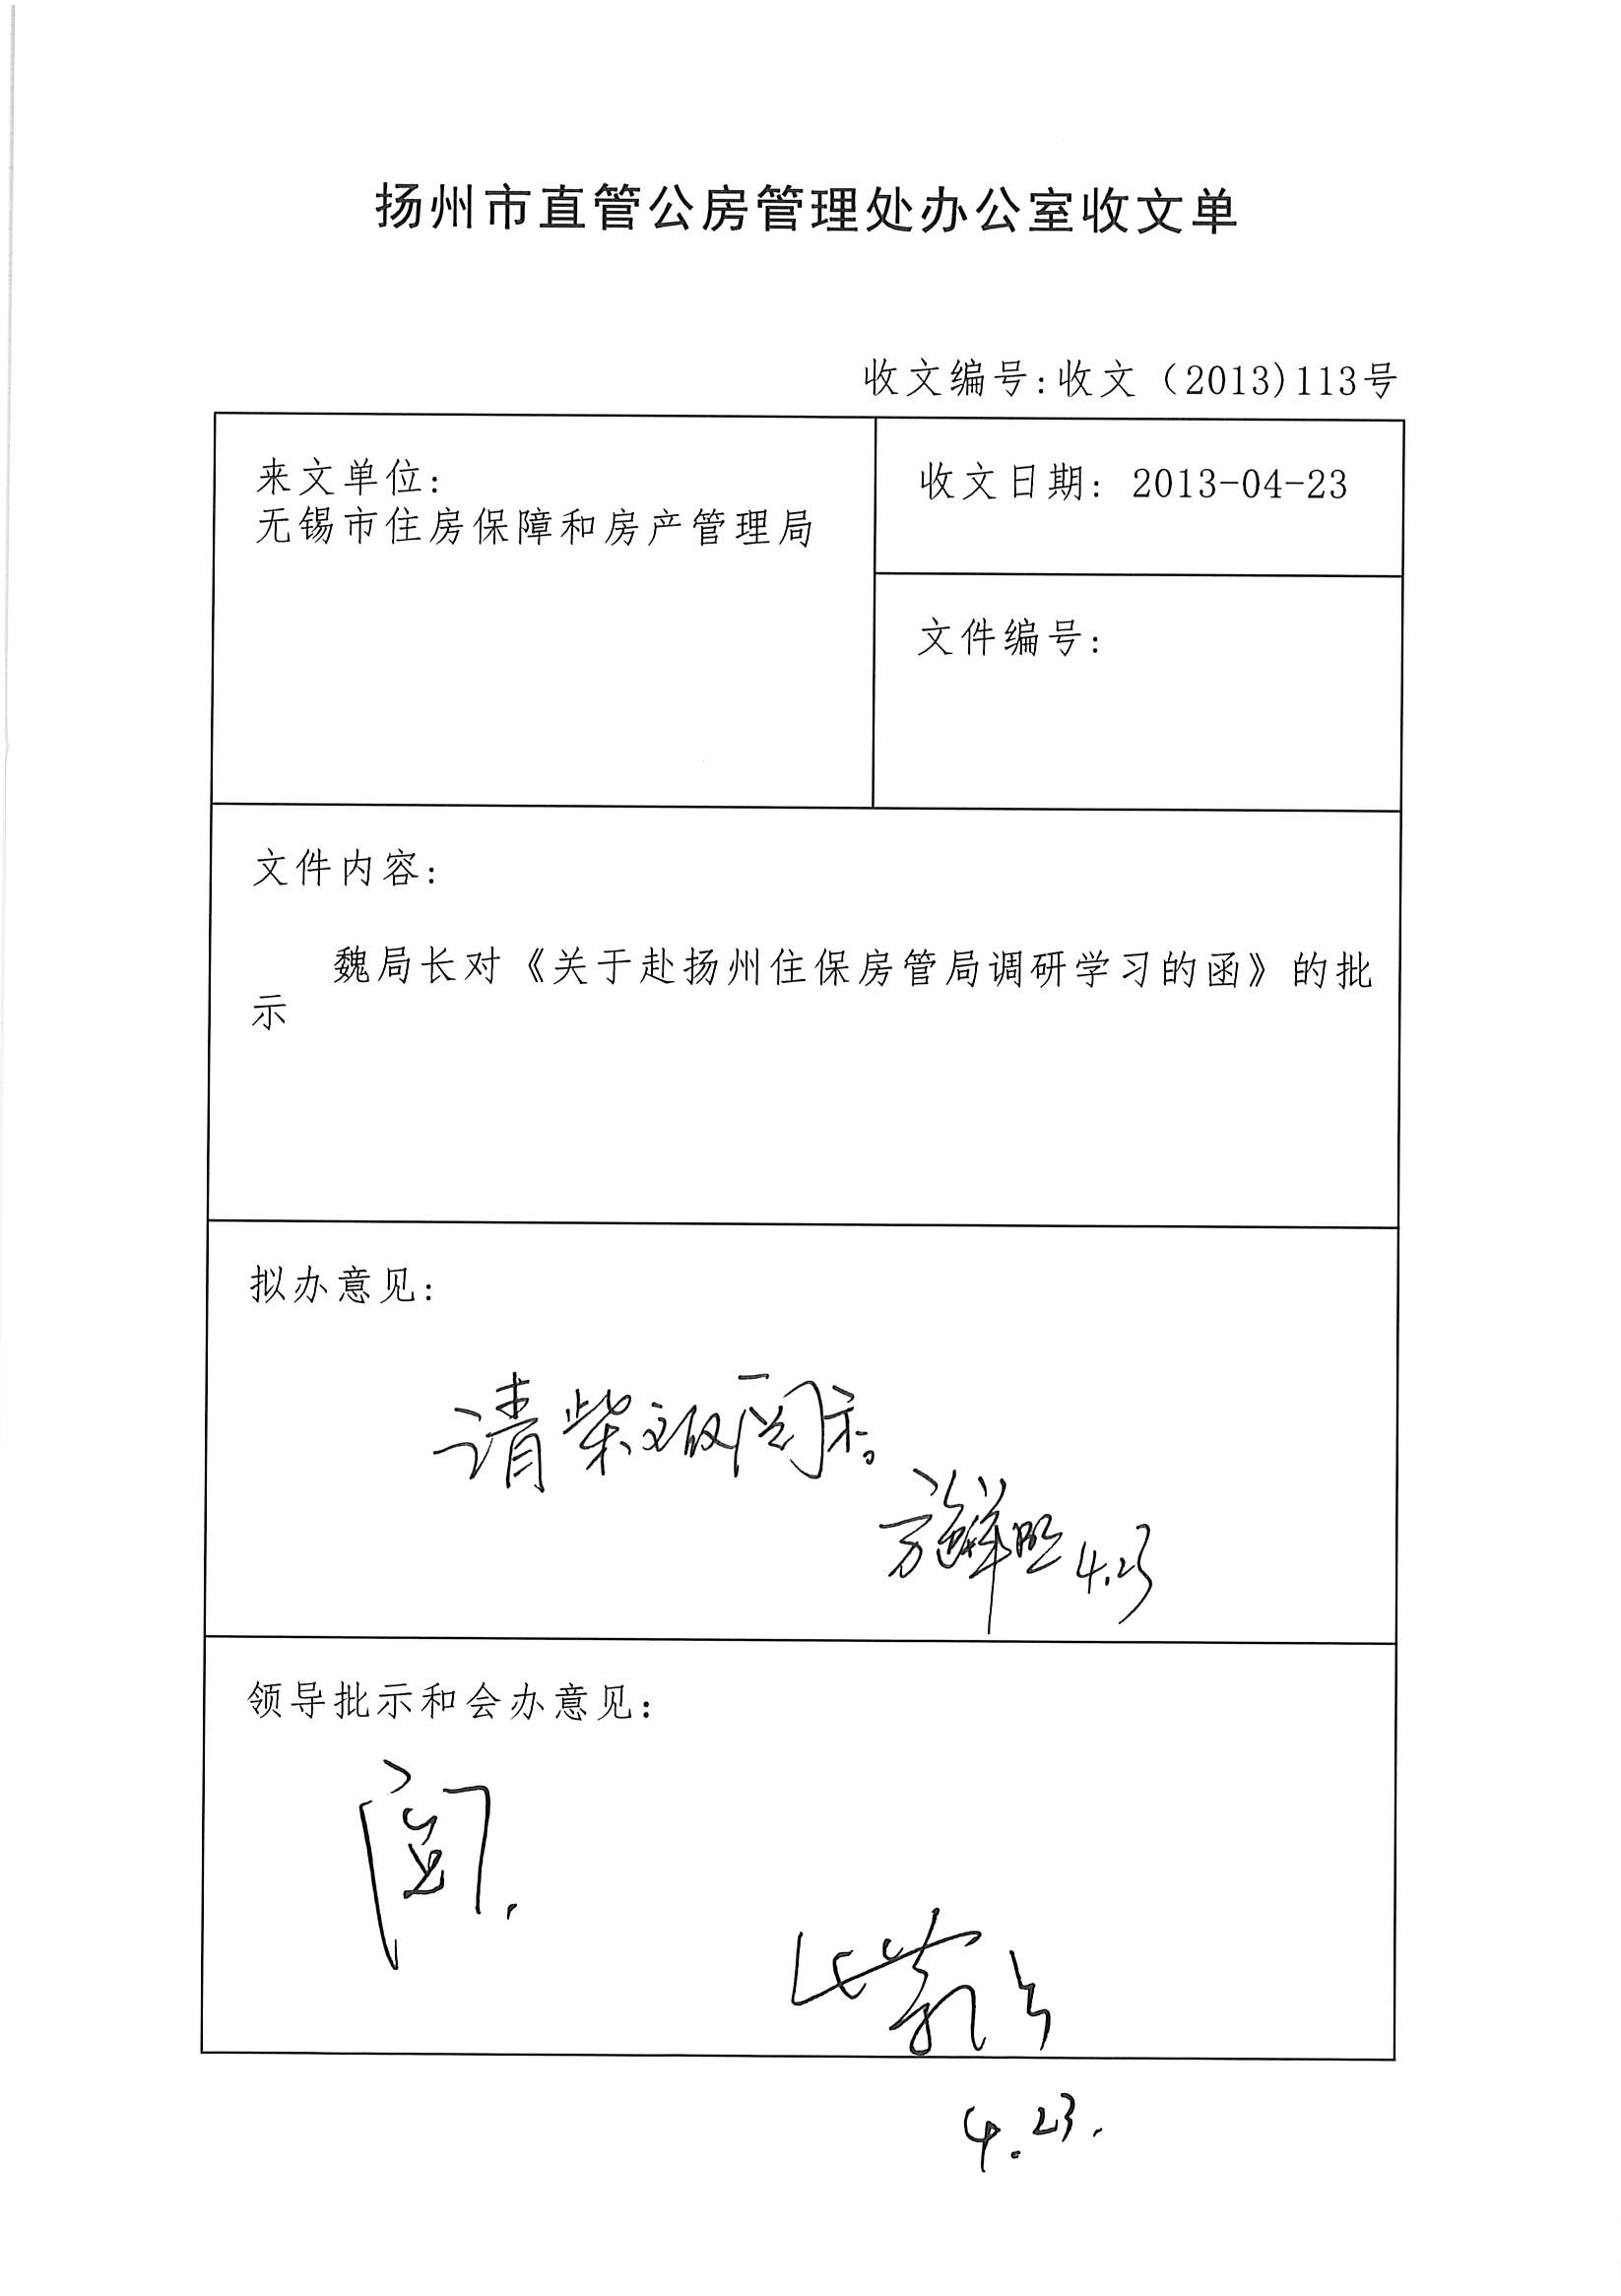 扬州市直管公房管理处办公室收文单
收文编号:收文（2013)113号
来文单位:
无锡市住房保障和房产管理局
收文日期: 2013-04-23
文件编号:
文件内容:
魏局长对《关于赴扬州住保房管局调研学习的函》的批
示
拟办意见:
请柴 阅示。
4.23
领导批示和会办意见:
阅.
柴
4.23.